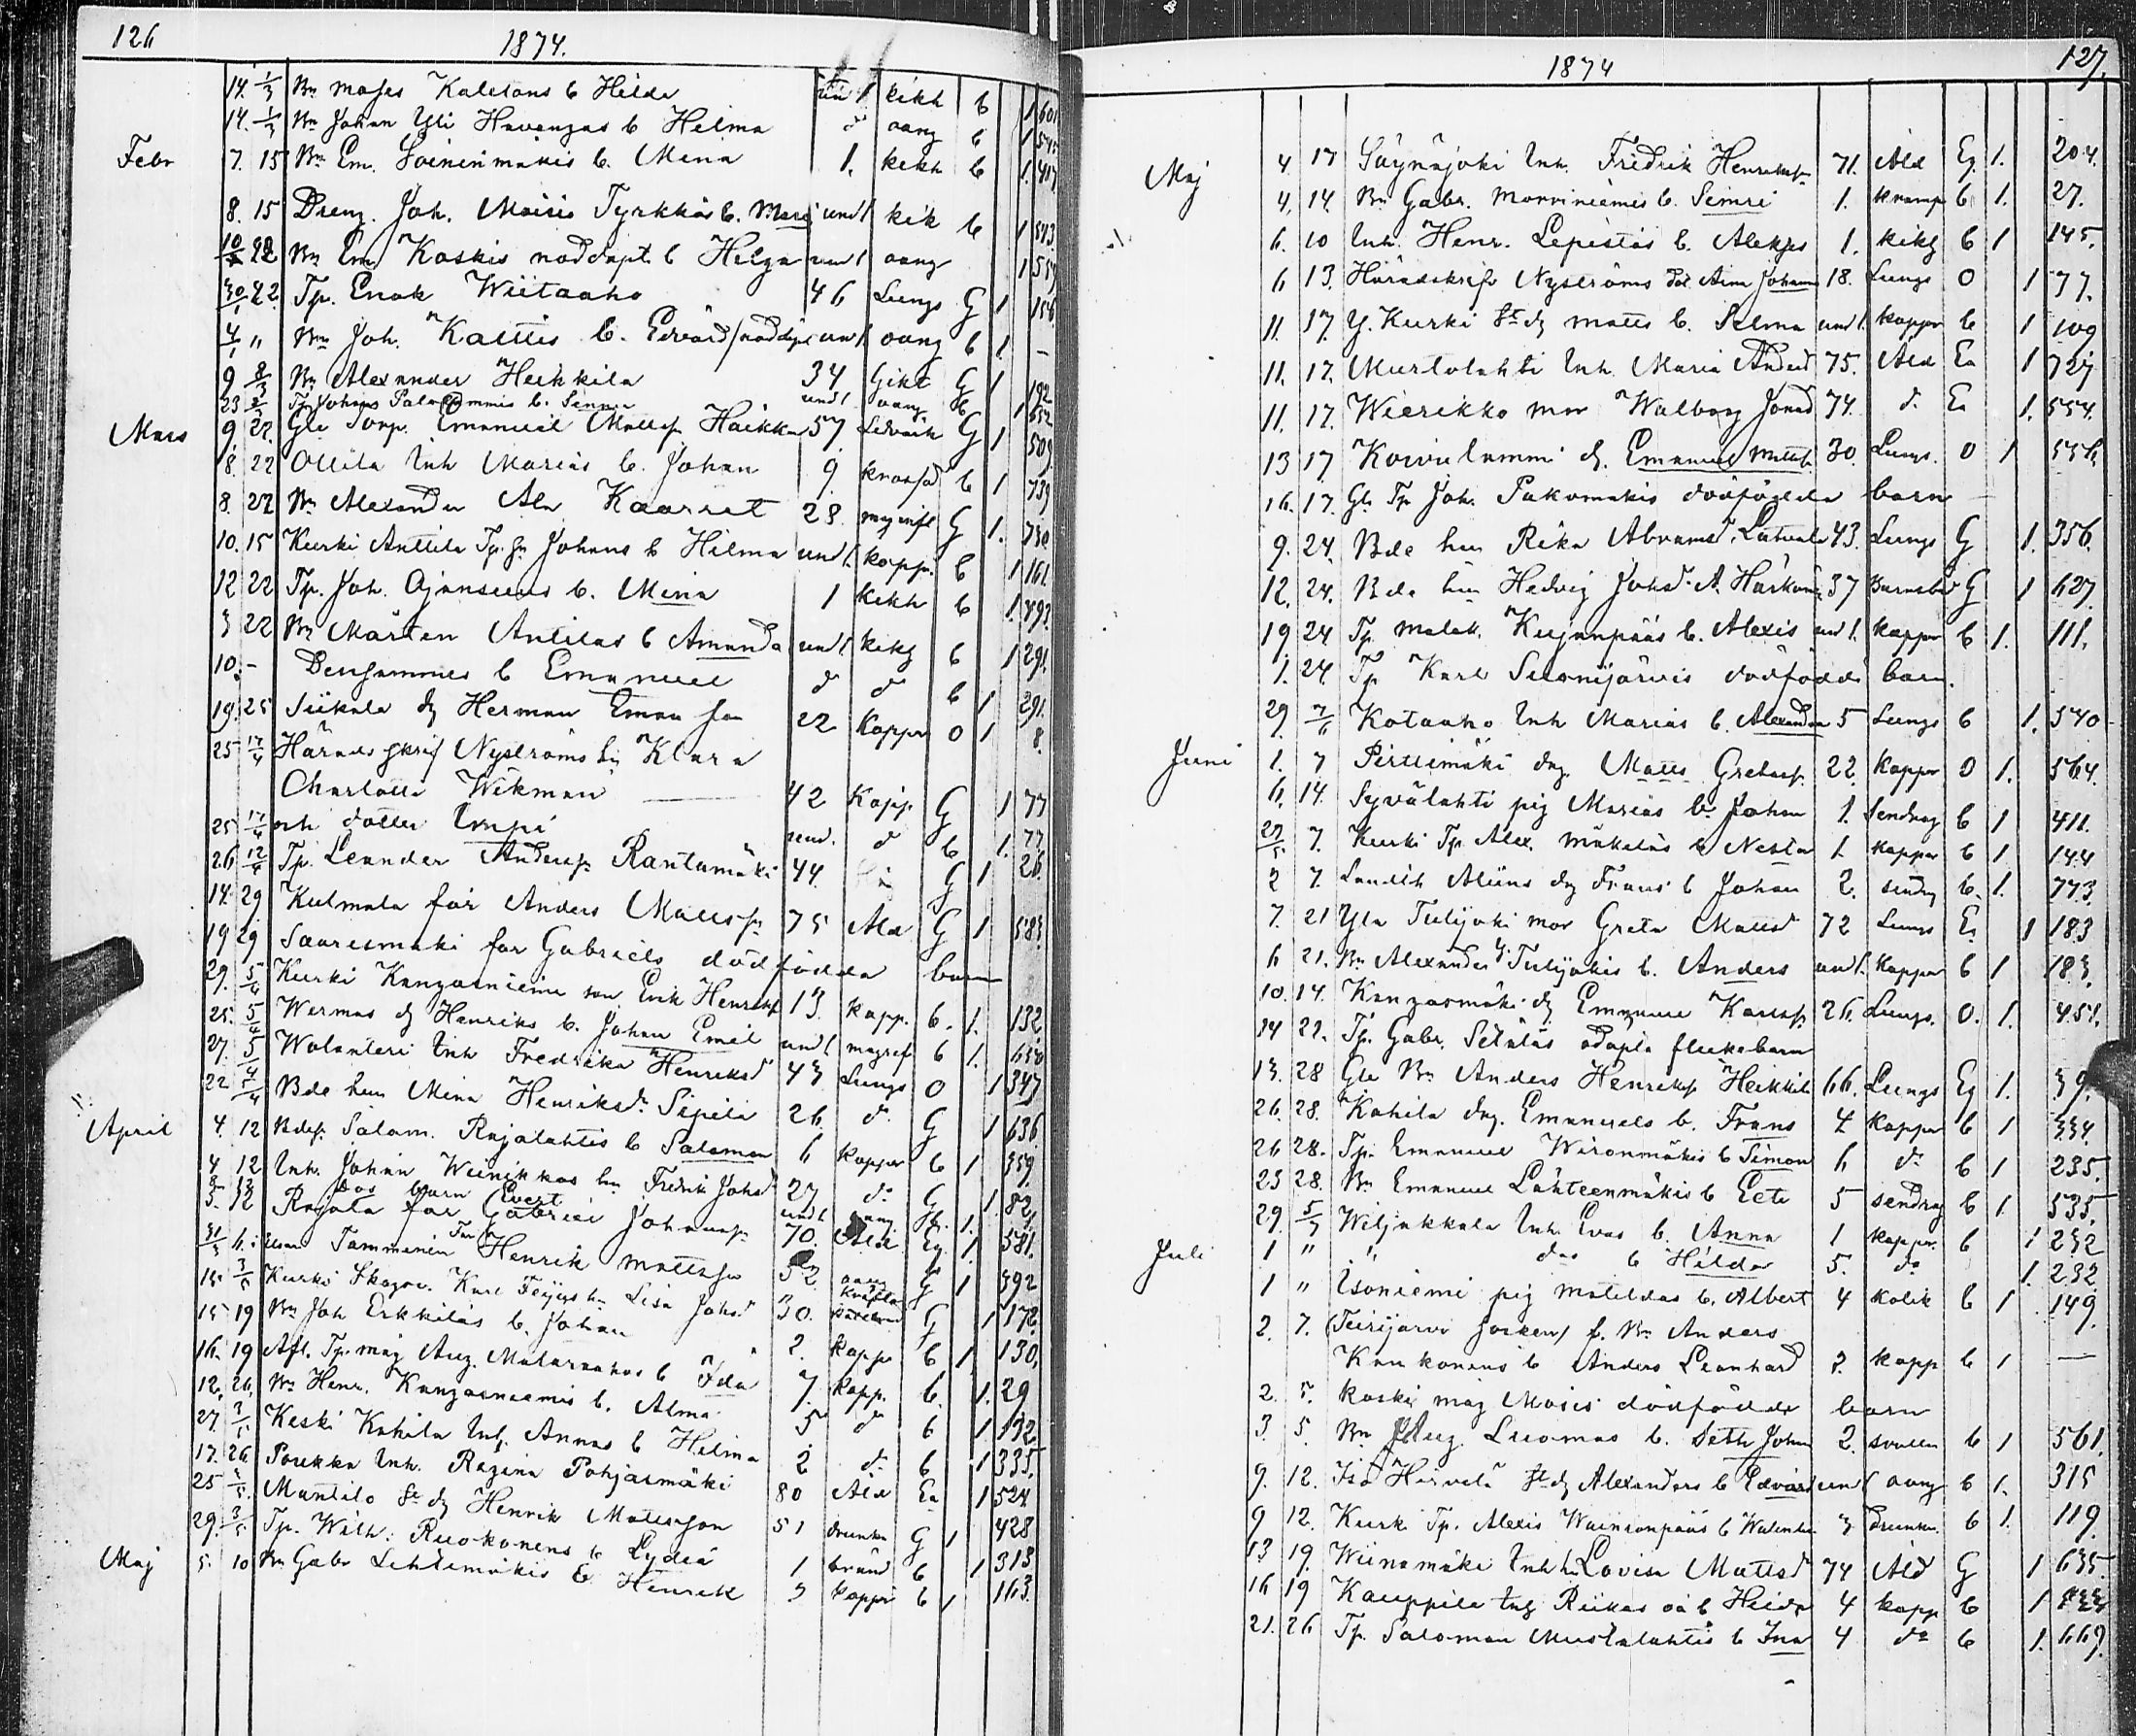 126 1874.
14. 1/3 Bn Moses Kaletons b Hilda und 1 kikh b 1 601
14. 1/3 Bn Johan Yli Havangas b Helma d:o oang b 1
Febr 7. 15 Bn Em. Soininmäkis b. Mina 1. kikh b 1. 417
8. 15 Dreng. Joh. Moisis Tyrkkös b. Maria und 1 kik b 1 543
22 Bn Em. Koskis nöddöpt. b Helga und 1 oang 1 557
30/1 22. Tp. Enok Wiitaaho 46 Lungs G 1 156
4/1 " Bn Joh. Kalttis b. Edvard / nöddöpt und 1 oang b 1 –
9 8/3 Bn Alexander Heikkilä 34 Gikt G 1 192
23 Tp Johans Palo b. Sanna und 1 oang b 1 652
Mars 9. 22. Gle Torp. Emanuel Mattsp. Haikka 57 Lidvärk G 1 509
8. 22 Ollila Inh Marias b. Johan 9. b 1 739
8. 22 Bn Alexander Ala Kaarret 28. G 1. 730
10. 15 Kurki Anttila Tp. Johans b Hilma und 1. kopp. b 1 161.
12 22 Tp. Joh. Ojansuus b. Mina 1 kikh b 1. 493.
3 22 Bn Mårten Antilas b Amanda und 1 kikh b 1 291.
10. – Densammes b Emanuel d:o d:o b 1 291.
19. 25 Siikala dg Herman Eman son 22 Koppor O 1 8.
25 17/4 Häradsskrif Nyströms hu Klara
Charlotta Wikman 42 Kopp. G 1 77
25 17/4 och dotter Impi und. d:o b 1. 77.
26 12/4 Tp. Leander Andersp. Rantamäki 44. G 1 26.
14. 29 Kulmala far Anders Mattsp. 75 Ald G 1 583.
19 29 Saaresmäki far Gabriels dödfödda barn
29. 5/4 Kurki Kangasniemi son Erik Henriksp. 13. kopp. b. 1. 132
25. 5/4 Wermas dg Henriks b. Johan Emil und 1 b 1. 650
27. 5/4 Wolanteri Inh Fredrika Henriksd 43 Lungs O 1 347
22 5/4 Bde hu Mina Henriksd. Sipilä 26. d:o G 1 636.
April 4. 12 Bdesp. Salom. Rajalahtis b Salomon 6 koppor b 1 359.
4 12 Inh. Johan Weinikkas hu Fredrik Johsd 27 d:o G 1. 82.
das barn Evert und 1 oang. b. 1.
5. 12 Rajala far Gabriel Johansp. 70. Ald Eg. 1. 581.
31/3 Tammenen Far Henrik Mattsson 52 oang G 1 392
15. 3/5 Kurki Skogov. Karl Feijers hu Lisa Johsd 30. G 1 172.
15 19 Bn Joh Erkkiläs b. Johan 2. kopp b 1 130.
16. 19 Afl. Tp. måg Aug. Mularnahos b Ida 7. kopp. b. 1. 29
12. 26. Bn Henr. Kangasniemis b. Alma 5 d:o b 1 132.
27. 3/5 Keski Kohila Inh. Annas b Hilma 2 d:o b 1 335.
17. 26. Porkka Inh. Regina Pohjasmäki 80 Ald En 1 524
25 3/5 Mantila dg Henrik Mattsson 51 drunkn G 1 428
29. 3/5 Tp. Wilh: Ruokonens b Lydia 1 bränd b 1 313.
Maj 5. 10 Bn Gabr Lehtimäkis b Henrik 3 koppor b 1 163.
1874 127.
Maj 4. 17 Säynäjoki Inh. Fredrik Henriksp. 71. Ald Eg. 1. 204.
4. 14. Bn Gabr. Morviniemis b. Seimi 1. kramp b 1. 27.
6. 10 Inh. Henr. Lepistäs b. Aleksis 1. kikh b 1 145.
6 13. Häradskrifv Nyströms dot. Aina Johanna 18. Lungs O 1 77.
11. 17. Y. Kurki dg Matts b. Selma und 1. koppor b 1 109
11. 17. Murtolahti Inh. Maria Andersd 75. Ald En 1 727
11. 17. Wierikko mor Walborg Jonsd 74. d:o En 1. 554.
13 17 Koivulammi dg. Emanuel Mattsp. 30. Lungs. O 1 556.
16. 17. Gle Tp Joh. Pukomäkis dödfödda barn
9. 24. Bde hu Rika Abramsd. Latvala 43. Lungs G 1. 356.
12. 24. Bde hu Hedvig Johsd. A. Härkönen 37 Barnsbörd G 1 627.
19. 24 Tp. Malak. Kujanpääs b. Alexis und 1. koppor b 1. 111.
1. 24 Tp Karl Salonijärvis dödfödda barn.
29 7/6 Kotaaho Inh Marias b. Alexander 5 Lungs b 1. 540
Juni 1. 7 Pirttimäki dg. Matts Gretasp. 22. koppor O 1. 564.
6. 14. Syvälahti pig Marias b. Johan 1. sendrag b 1 411.
27/5 7. Kurki Tp. Alex. Mäkeläs b Nestor 1. koppor b 1 144
2 7. Landth Aliins dg Frans b Johan 2. sendrag b. 1. 773.
7. 21 Yla Tulijoki mor Greta Mattsd 72 Lungs En 1 183
6 21. Bn Alexander Y. Tulijokis b. Anders und 1. koppor b 1 183.
10. 14. Kangasmäki dg Emanuel Karlsp. 26. Lungs. O. 1. 451.
14 21. Tp. Gabr. Setäläs odöpta flickebarn
13. 28 Gle Bn Anders Henriksp Heikkilä 66. Lungs Eg 1. 39.
26. 28. Kohila dng. Emanuels b. Frans 4 koppor b 1 334.
26 28. Tp. Emanuel Wironmäkis b Simon 6 d:o b 1 235.
23 28. Bn Emanuel Lähteenmäkis b Eeti 5 sendrag b 1 535.
29. 5/7 Wiljakkala Inh. Evas b. Anna 1 koppor. b 1 232
Juli 1 " " das b Hilda 5. d:o 1. 232
1 " Isoniemi pig Matildas b. Albert 4 kolik b 1 149.
2. 7. (Teirijärvi Socken) f. Bn Anders
Kaukonens b Anders Leonhard 2. kopp b 1 —
2. 5. Koski måg Moses dödfödda barn
3. 5. Bn Aug Luomas b. Seth Johan 2. b 1 561.
9. 12. Iso Hirvelä dg Alexanders b Edvard und 1 oang b 1. 315
9 12. Kurki Tp. Alexis Wainionpääs b Walentin 3 drunkn. b 1. 119.
13 19. Wiinamäki Inh hu Lovisa Mattsd 74 Ald G 1 635.
16 19 Kauppila Inh Riikas oä b Heidi 4 kopp b 1
21. 26 Tp. Saloman Mustalahtis b Ina 4 d:o b 1. 669.